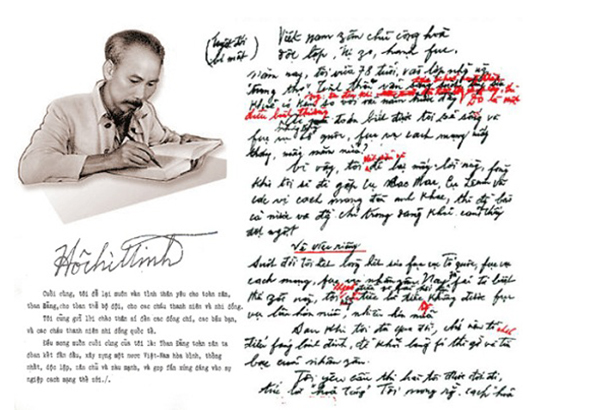 (tuyệt đối
bí mật)
Việt nam zân chủ cộng hoà
độc lập, tự zo, hạnh fúc.
năm nay, tôi vừa 78 tuổi, vào lớp những
điều bình thường
fục vụ tổ quốc, fục vụ cách mạng mấy
tháng, mấy năm nữa?
Vì vậy, tôi để lại mấy lời này, fòng
khi tôi sẽ đi gặp cụ Các Mác, cụ Lênin và
các vị cách mạng đàn anh khác, thì đồng bào
cả nước và đồng chí trong đảng khỏi cảm thấy
đột ngột
Về việc riêng
Suốt đời tôi hết lòng hết sức fục vụ tổ quốc, fục vụ
cách mạng, fục vụ nhân dân. Nay fải từ biệt
thế giới này, tôi không có điều gì fải hối hận, chỉ tiếc là tiếc không được fục
vụ lâu hơn nữa, nhiều hơn nữa
Sau khi tôi đã qua đời, chớ nên tổ chức
điếu fúng linh đình, để khỏi lãng fí thì giờ và tiền
bạc của nhân dân.
Tôi yêu cầu thi hài tôi được đốt đi,
tức là "hoả táng". Tôi mong rằng cách hoả
Hồ Chí Minh
Cuối cùng, tôi để lại muôn vàn tình thân yêu cho toàn dân,
toàn Đảng, cho toàn thể bộ đội, cho các cháu thanh niên và nhi đồng.
Tôi cũng gửi lời chào thân ái đến các đồng chí, các bầu bạn,
và các cháu thanh niên nhi đồng quốc tế.
Điều mong muốn cuối cùng của tôi là: Toàn Đảng toàn dân ta
đoàn kết phấn đấu, xây dựng một nước Việt-Nam hoà bình, thống
nhất, độc lập, dân chủ và giàu mạnh, và góp phần xứng đáng vào sự
nghiệp cách mạng thế giới./.